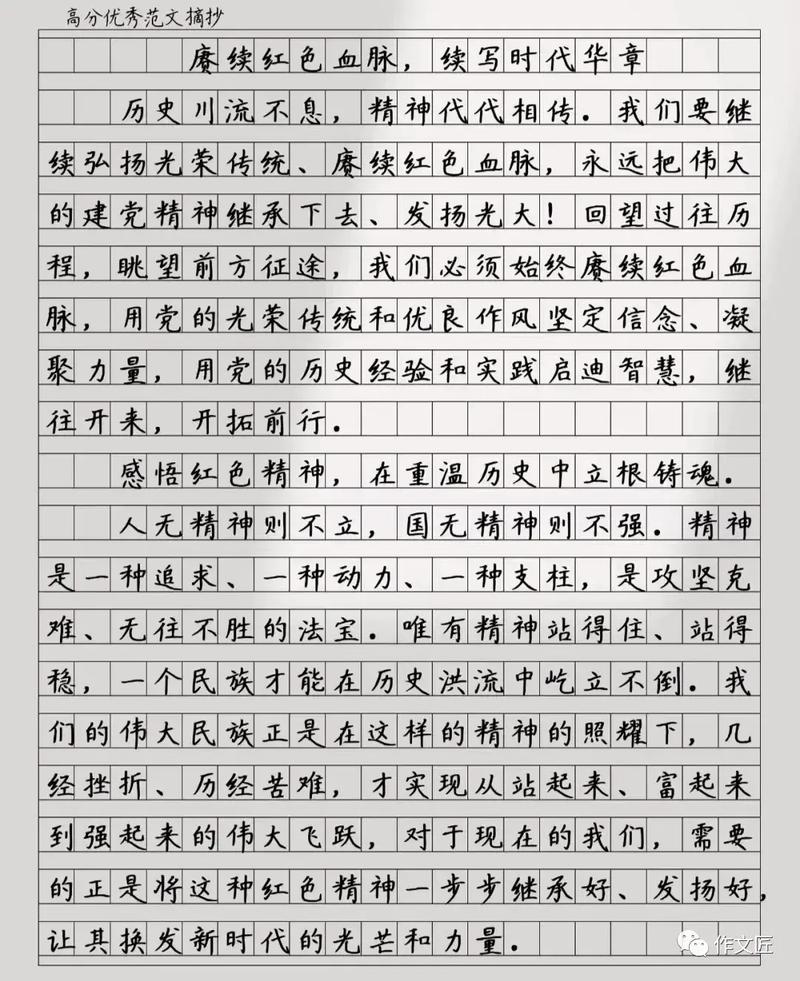 高分优秀范文摘抄
赓续红色血脉，续写时代华章
历史川流不息，精神代代相传．我们要继
续弘扬光荣传统、赓续红色血脉，永远把伟大
的建党精神继承下去、发扬光大！回望过往历
程，眺望前方征途，我们必须始终赓续红色血
脉，用党的光荣传统和优良作风坚定信念、凝
聚力量，用党的历史经验和实践启迪智慧，继
往开来，开拓前行．
感悟红色精神，在重温历史中立根铸魂．
人无精神则不立，国无精神则不强．精神
是一种追求、一种动力、一种支柱，是攻坚克
难、无往不胜的法宝．唯有精神站得住、站得
稳，一个民族才能在历史洪流中屹立不倒．我
们的伟大民族正是在这样的精神的照耀下，几
经挫折、历经苦难，才实现从站起来、富起来
到强起来的伟大飞跃，对于现在的我们，需要
的正是将这种红色精神一步步继承好、发扬好，
让其换发新时代的光芒和力量．
作文匠